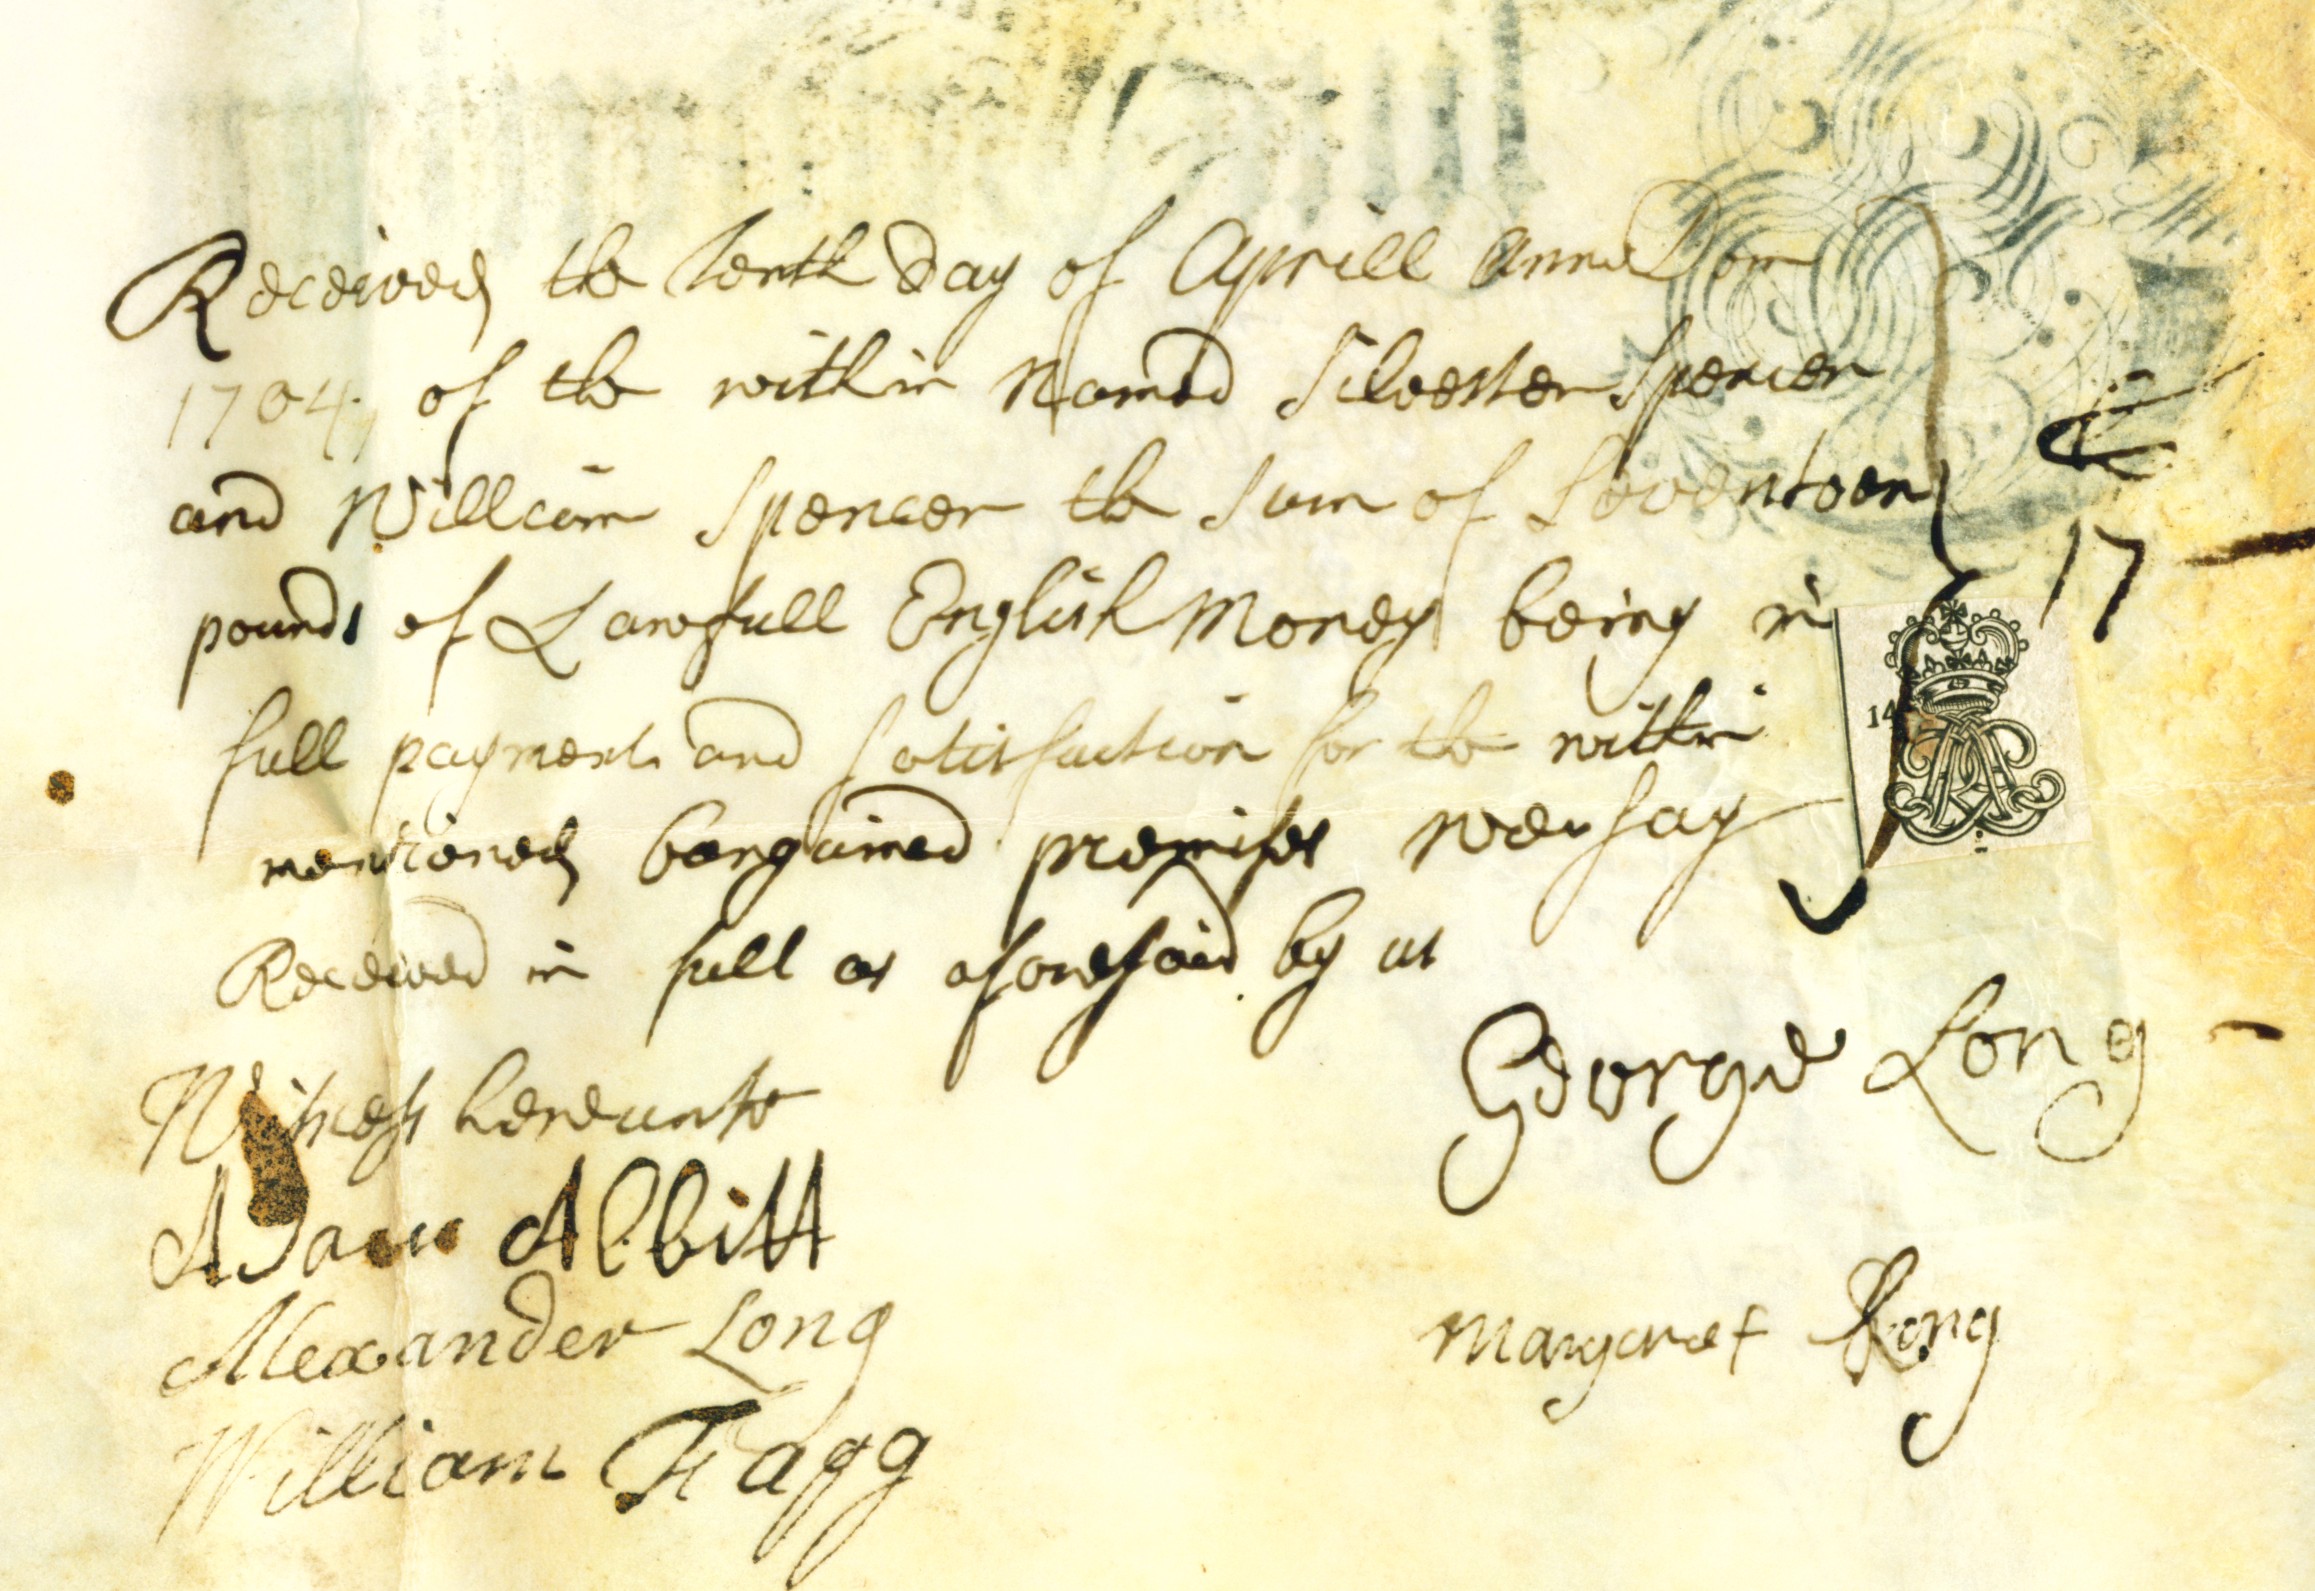 Received the tenth day of Aprill Anno Dom
1704, of the within Named Silvester Spencer
and William Spencer the Sum of Seventeen
pounds of Lawfull English Money being in
full payment and satisfaction for the within
mentioned bargained premises wee say
Received in full as aforesaid by us
£
17
14
AR
George Long
Margaret Long
Witness hereunto
Adam Abbitt
Alexander Long
William Fagg